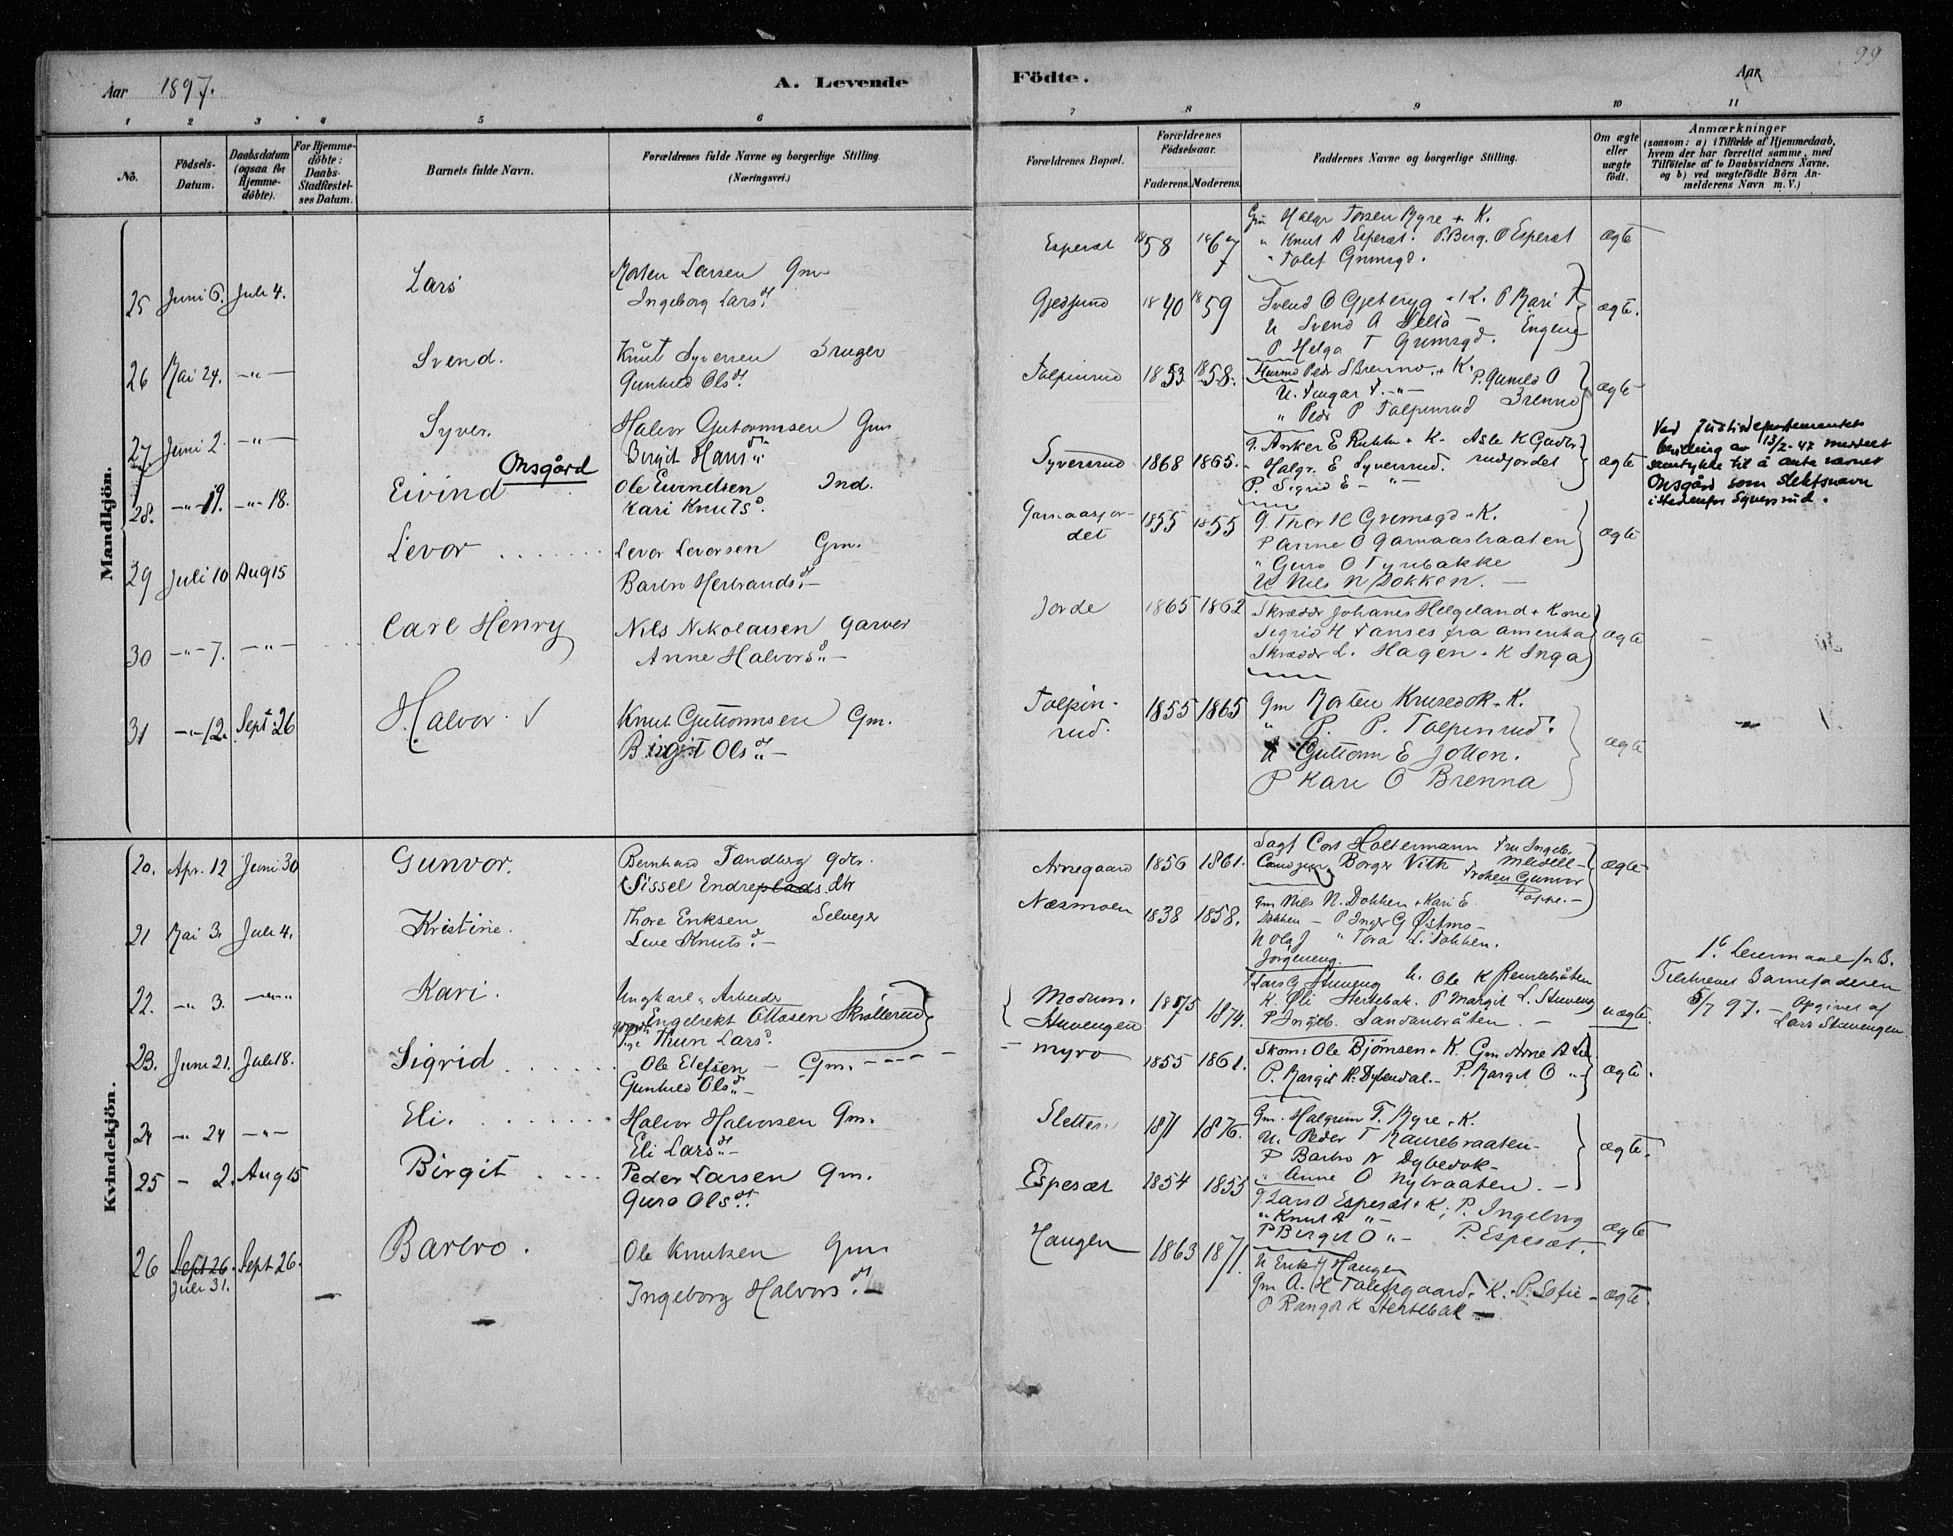 Aar 1897.
A. Levende
Födte.
Aar
99
1 2 3 4 5 6 7 8 9 10 11
No.
Födsels-Datum.
Daabsdatum (ogsaa for Hjemme-döbte).
For Hjemme-döbte: Daabs-Stadfæstel-ses Datum.
Barnets fulde Navn.
Forældrenes fulde Navne og borgerlige Stilling. (Næringsvei.)
Forældrenes Bopæl.
Forældrenes Födselsaar.
Faderens. Moderens.
Faddernes Navne og borgerlige Stilling.
Om ægte eller uægte födt.
Anmærkninger
(saasom: a) i Tilfælde af Hjemmedaab, hvem der har forrettet samme, med Tilföielse af to Daabsvidners Navne, og b) ved uægtefödte Börn An-melderens Navn m. V.)
Mandkjön.
25 Juni 6. Juli 4. Lars
Morten Larsen Gm
Ingeborg Larsd.
Esperset 1858 1867
Gm Halgr Torsen Myre + K.
" Knut A Esperset. P. Berg. O Esperset
" Tolef Grimsgd.
ægte
26 Mai 24. -"- Svend.
Knut Syversen Bruger
Gunhild Olsd.
Gjedsund 1840 1859
Svend O + K. P Kari T.
U Svend A Engene
P Helga T Grimsgd.
ægte.
27 Juni 2. -"- Syver.
Halvor Guttormsen Gm
Birgit Hansd.
Tolpinrud 1853 1858.
Peder S Brenno + K. P. Gunild O
U. Tungar T. -"- Brenno
" Peder P Tolpinrud
ægte
28. -"- 19. -"- 18. Eivind Onsgård
Ole Eivindsen Ind.
Kari Knutsd.
Syversrud 1868 1865.
G. Anker E Rukke + K. Asle K Gader-
" Halgr. E Syversrud. rudjordet
P. Sigrid E -"-
ægte
Ved Justisdepartementets
bevilling av 13/2-47 meddelt
samtykke til å anta navnet
Onsgård som slektsnavn
istedenfor Syversrud.
29 Juli 10 Aug 15 Levor
Levor Levorsen Gm.
Barbro Herbrandsd.
Garnaasjor-
det 1855 1855
G. Thor H Grimsgd + K.
P Anne O Garnaasbraaten
" Guro O Tyribakke
U Nils N Dokken. -
ægte
30 -"- 7. -"- Carl Henry
Nils Nikolaisen Garver
Anne Halvorsd.
Jorde 1865 1862
Skrædder Johanes Helgeland + Kone
Sigrid H Tanses fra Amerika
Skrædder L. Hagen + K Inga
ægte
31 -"- 12. Sept. 26 Halvor. √
Knut Guttormsen Gm.
Birgit Olsd.
Tolpin-
rud. 1855 1865
Gm Morten Krusedok + K.
" P. P. Tolpinrud.
U Guttorm E Jotten.
P Kari O Brenna
ægte
Kvindekjön.
20. Apr. 12 Juni 30 Gunvor.
Bernhard Tandberg
Sissel Endreplads dtr
Arnegaard 1856 1861.
Sagf Cort Holtermann Fru Ingeb.
Borger Vith Meidell
Frøken Gunvor
Poppe.
ægte
21 Mai 3. Juli 4. Kristine.
Thore Eriksen Selveier
Live Knutsd.
Næsmoen 1838 1858.
Gm Nils N. Dokken + Kari E.
Dokken - P Inger G Østmo -
U Ola J " Tora L. Dokken.
Jorgeneng.
22. -"- 3. -"- Kari.
Ungkarl, Arbeider
Engebrekt Ottosen Skrollerud
Pige Thuri Larsd.
Modum.
Stuvengen 1875 1874.
Lars G Stuveng U. Ole K Reneslebråten
K. Oli Hertsbak. P Margit L. Stuveng
P Ingeb. Sandanbråten. -
uægte
1ste Leiermaal f. B.
Tilskrevet Barnefaderen
5/7 97. - Opgivet af
Lars Stuvengen
23. Juni 21. Juli 18. Sigrid
Ole Elefsen - Gm.
Gunhild Olsd.
Myro 1855 1861.
Skom: Ole Bjørnsen + K. Gm Arne A Lie.
P. Margit H. Dybendal. P. Margit O "-
ægte.
24 -"- 24 -"- Eli.
Halvor Halvorsen Gm.
Eli Larsd.
Sletten 1871 1876.
Gm. Halgrim T. Myre + K.
U. Peder T Maurebraaten -
P Barbro N Dybedok -
" Anne O Nybraaten. -
ægte.
25 - 2. Aug 15 Birgit
Peder Larsen Gm.
Guro Olsd.
Espesæt 1854 1855
G. Lars O Espesæt + K; P. Ingebrg
" Knut A "-
P Birgit O "- P. Espesæt.
ægte
26 Sept 26. Sept 26. Barbro.
Juli 31.
Ole Knutsen Gm
Ingeborg Halvorsd.
Haugen 1863 1871.
U Erik Haugen
Gm A. H Tolefsgaard + K. - P. Sofie -
P Rangdi K Hertsbak
ægte.